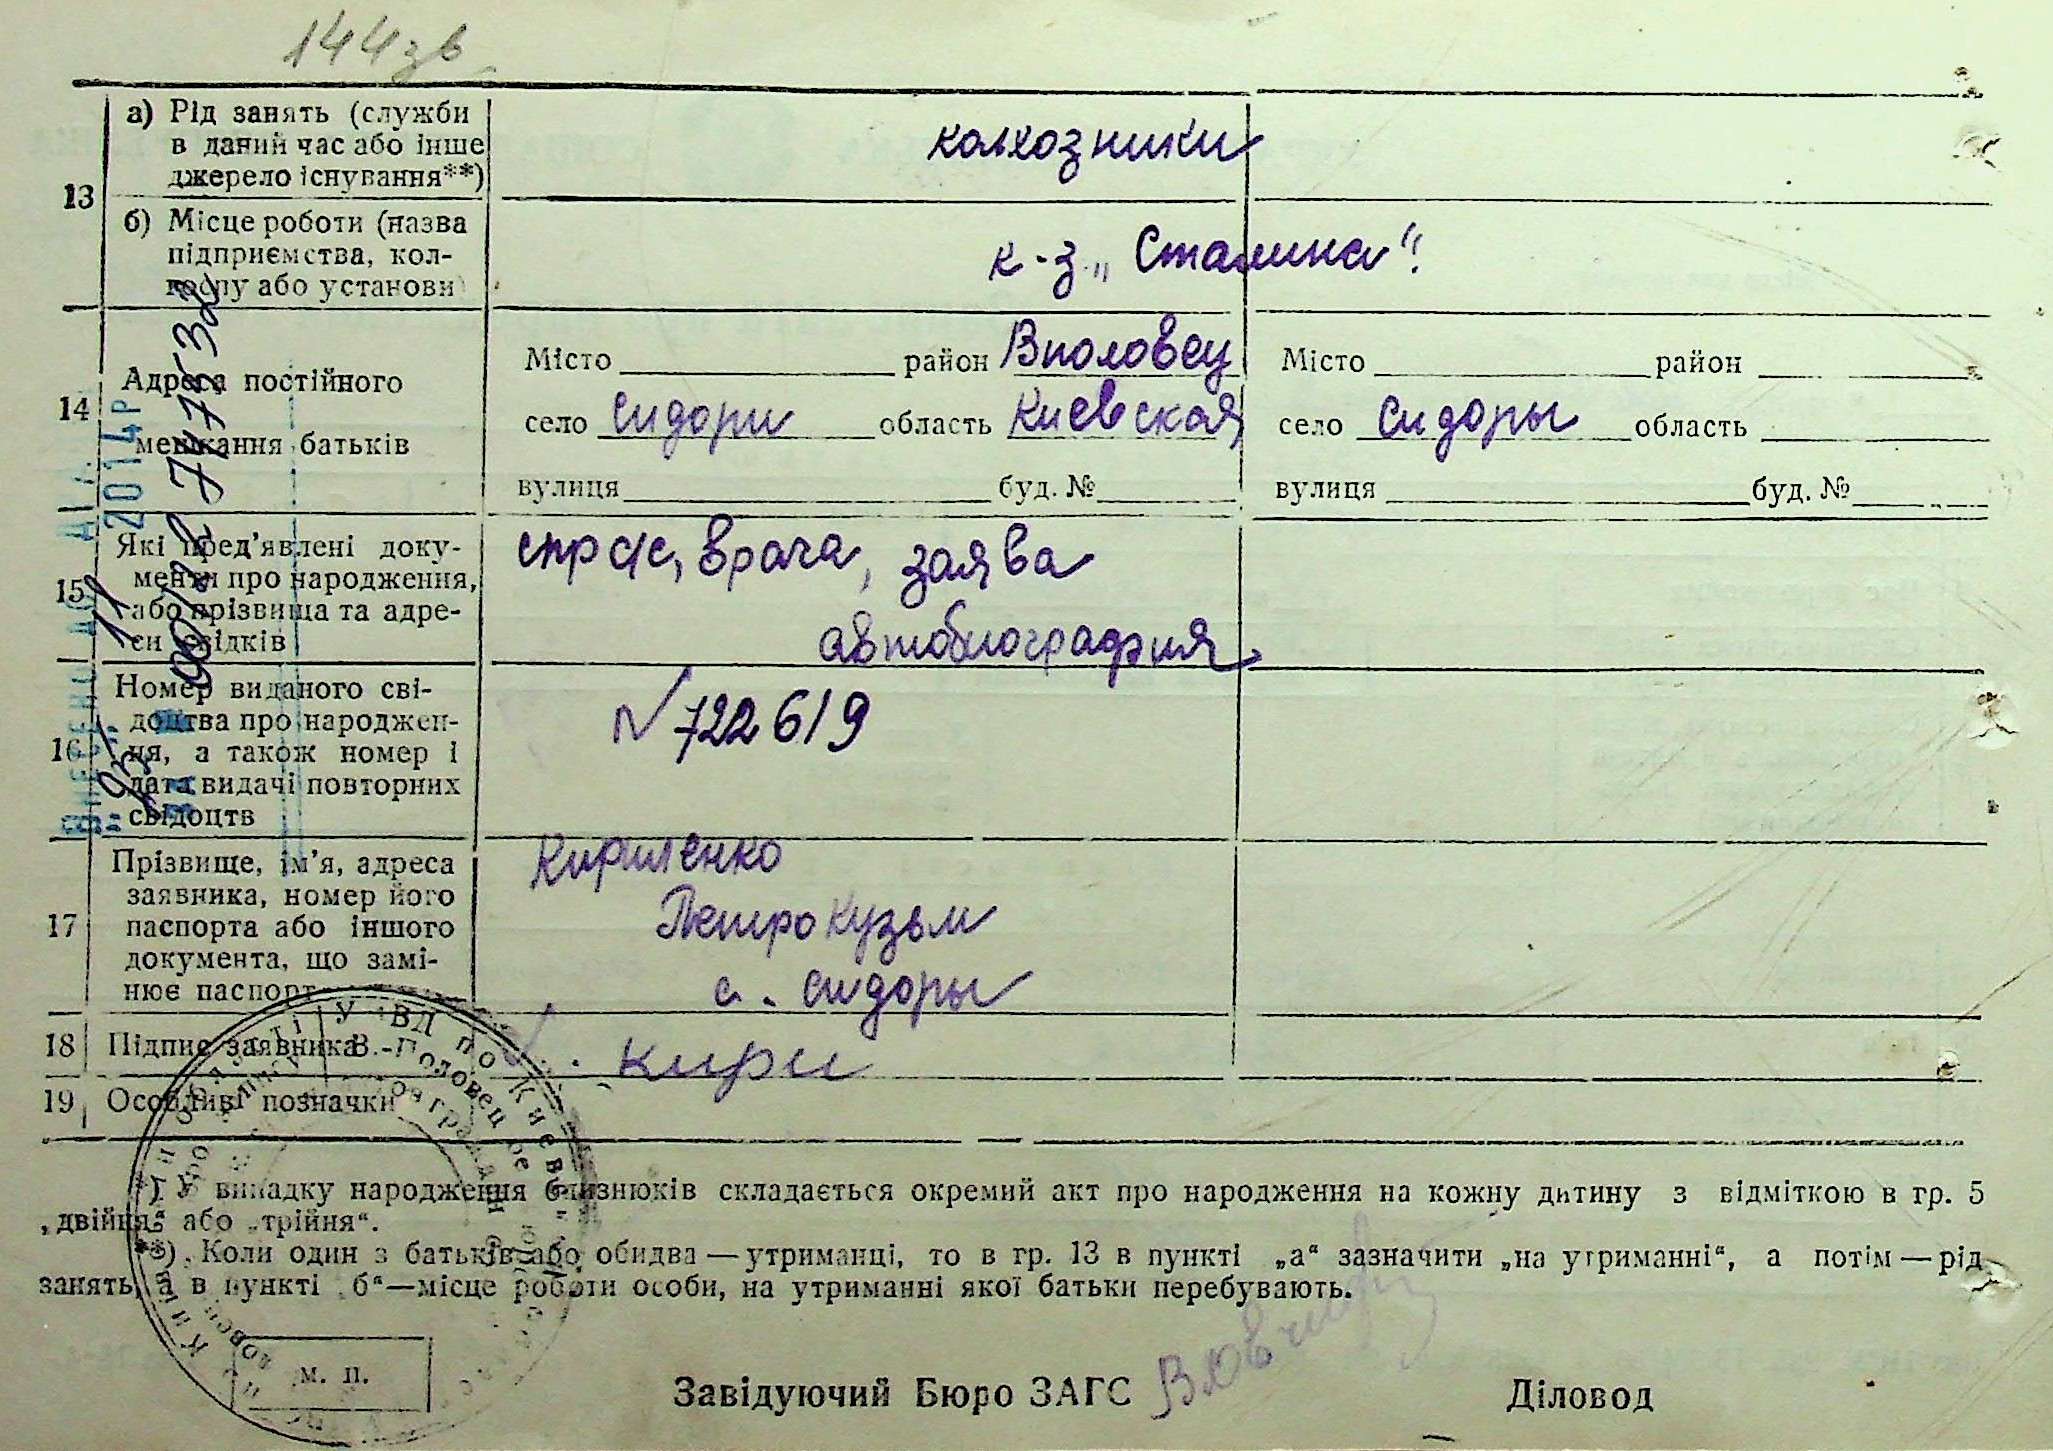 144зв
13
а) Рід занять (служби
в даний час або інше
джерело існування**)
колхозники
б) Місце роботи (назва
підприємства, кол-
госпу або установи)
к-з „Сталина“
14
Адреса постійного
мешкання батьків
Місто район Вполовец Місто район
село Сидори область Киевская село Сидоры область
вулиця буд. № вулиця буд. №
15
Які пред’явлені доку-
менти про народження,
або прізвища та адре-
си свідків
спр с/с, врача, заява
автобиография
16
Номер виданого сві-
доцтва про народжен-
ня, а також номер і
дата видачі повторних
свідоцтв
№ 722619
17
Прізвище, ім’я, адреса
заявника, номер його
паспорта або іншого
документа, що замі-
нює паспорт
Кириленко
Петро Кузьм
с. Сидоры
18 Підпис заявника
Кири
19 Особливі позначки
*) У випадку народження близнюків складається окремий акт про народження на кожну дитину з відміткою в гр. 5
„двійня“ або „трійня“.
**) Коли один з батьків або обидва — утриманці, то в гр. 13 в пункті „а“ зазначити „на утриманні“, а потім — рід
занять, а в пункті б“—місце роботи особи, на утриманні якої батьки перебувають.
м. п.
Завідуючий Бюро ЗАГС Діловод
2014р